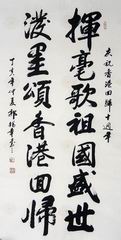 庆祝香港回歸十週年
揮毫歌祖國盛世
潑墨頌香港回歸
丁亥年仲夏